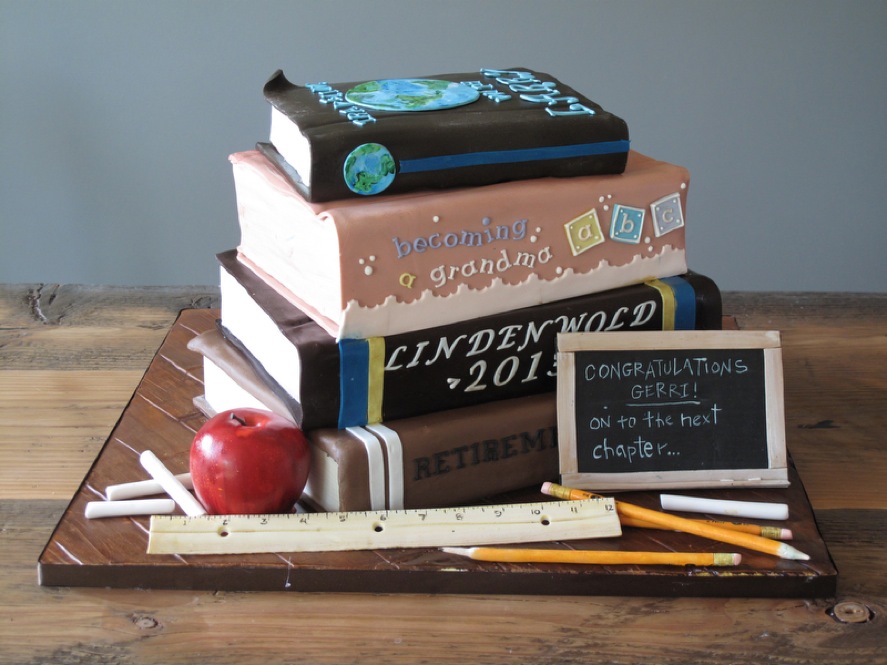 becoming
a grandma
a b c
LINDENWOLD
2013
RETIREME
CONGRATULATIONS
GERRI!
on to the next
chapter...
1 2 3 4 5 6 7 8 9 10 11 12